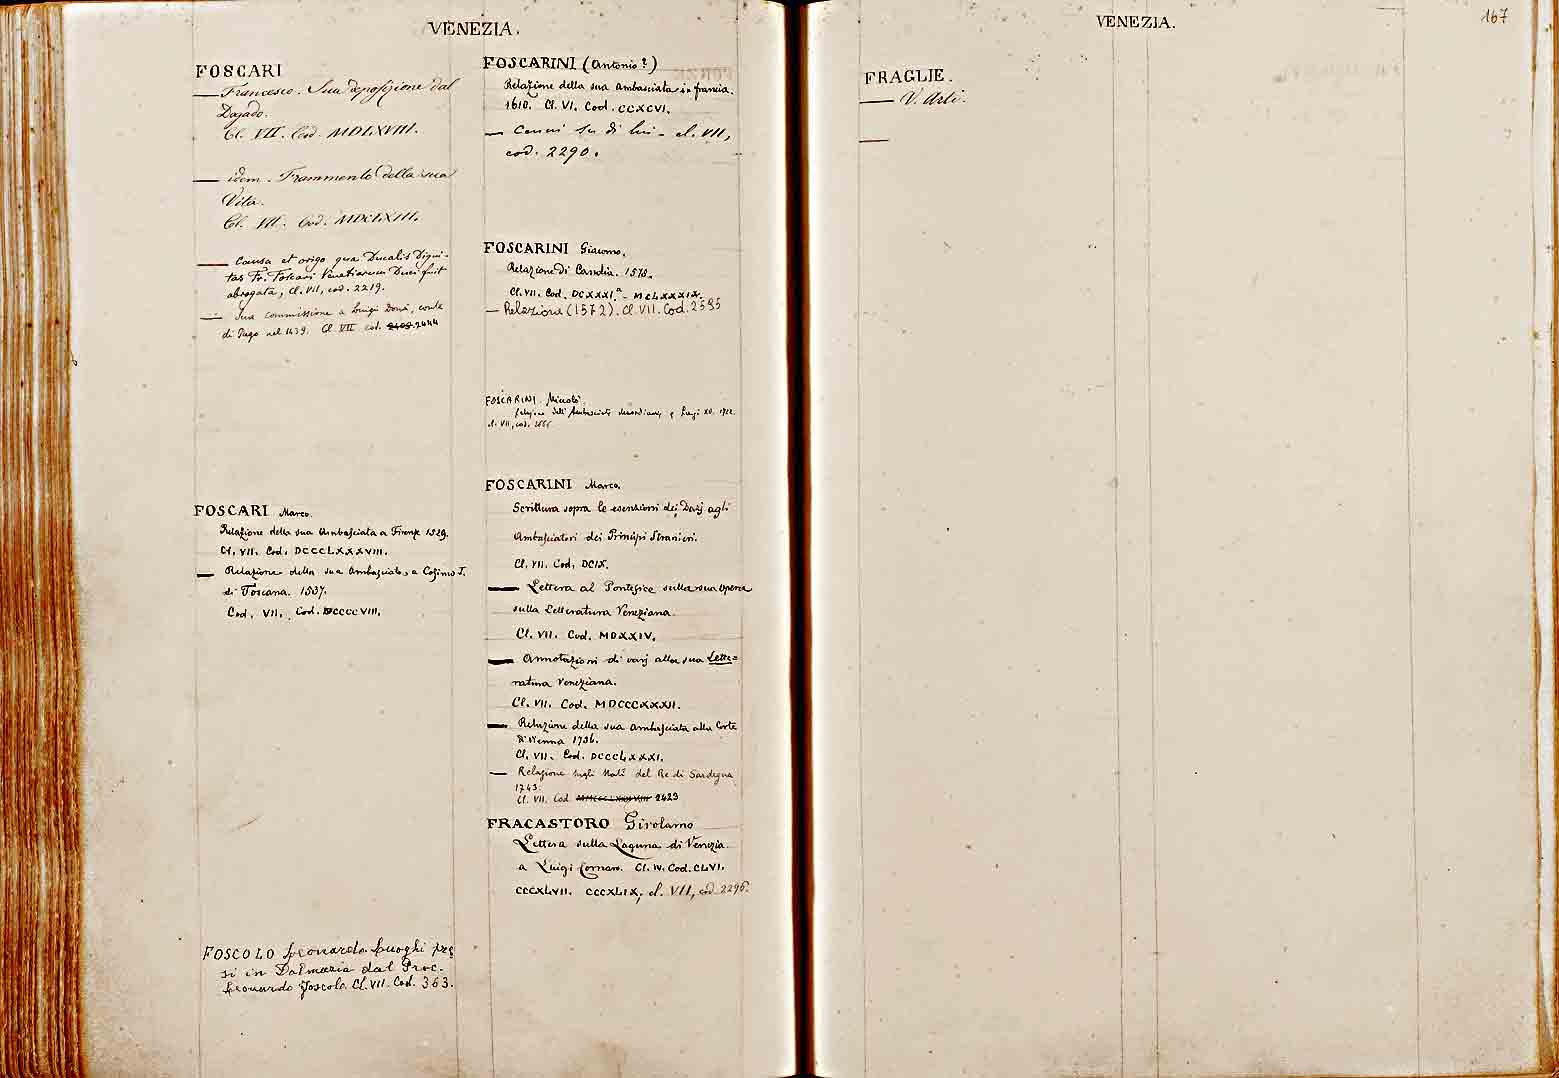 VENEZIA.
FOSCARI
— Francesco. Sua deposizione dal
Dogado.
Cl. VII. Cod. MDLXVIII.
— idem. Frammento della sua
Vita.
Cl. VII. Cod. MDCLXIII.
— Causa et origo qua Ducalis Digni-
tas Fr. Foscari Venetiarum Duci fuit
abrogata, Cl. VII, cod. 2219.
— Sua commissione a Luigi Donà, conte
di Pago nel 1439. Cl. VII cod. 2444
FOSCARI Marco.
Relazione della sua Ambasciata a Firenze 1529.
Cl. VII. Cod. DCCCLXXXVIII.
— Relazione della sua Ambasciata a Cosimo I.
di Toscana. 1537.
Cod. VII. Cod. DCCCCVIII.
FOSCOLO Leonardo. Luoghi pre
si in Dalmazia dal Proc.
Leonardo Foscolo. Cl. VII. Cod. 363.
FOSCARINI (Antonio?)
Relazione della sua ambasciata in Francia.
1610. Cl. VI. Cod. CCXCVI.
— Cenni su di lui - cl. VII,
cod. 2290.
FOSCARINI Giacomo.
Relazione di Candia. 1578.
Cl. VII. Cod. DCXXXI.a - MCLXXXIX.
— Relazione (1572). Cl. VII. Cod. 2535
FOSCARINI Niccolò.
dell'Ambasciata
cl. VII, cod.
FOSCARINI Marco.
Scrittura sopra le esenzioni dei Dazj agli
Ambasciatori dei Principi Stranieri.
Cl. VII. Cod. DCIX.
— Lettera al Pontefice sulla sua opera
sulla Letteratura Veneziana.
Cl. VII. Cod. MDXXIV.
— Annotazioni di varj alla sua Lette=
ratura Veneziana.
Cl. VII. Cod. MDCCCXXXII.
— Relazione della sua Ambasciata alla Corte
di Vienna 1736.
Cl. VII. Cod. DCCCLXXXI.
— Relazione sugli Stati del Re di Sardegna
1743.
Cl. VII. Cod. 2429
FRACASTORO Girolamo
Lettera sulla Laguna di Venezia
a Luigi Cornaro. Cl. IV. Cod. CLVI.
CCCXLVII. CCCXLIX; cl. VII, cod 2296.
VENEZIA.
167
FRAGLIE.
— V. Arti.
—